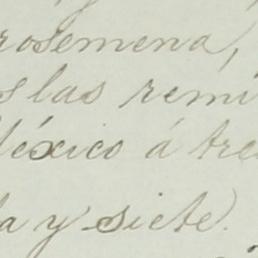 rosemena,
s las remi
México á tre
a y siete.